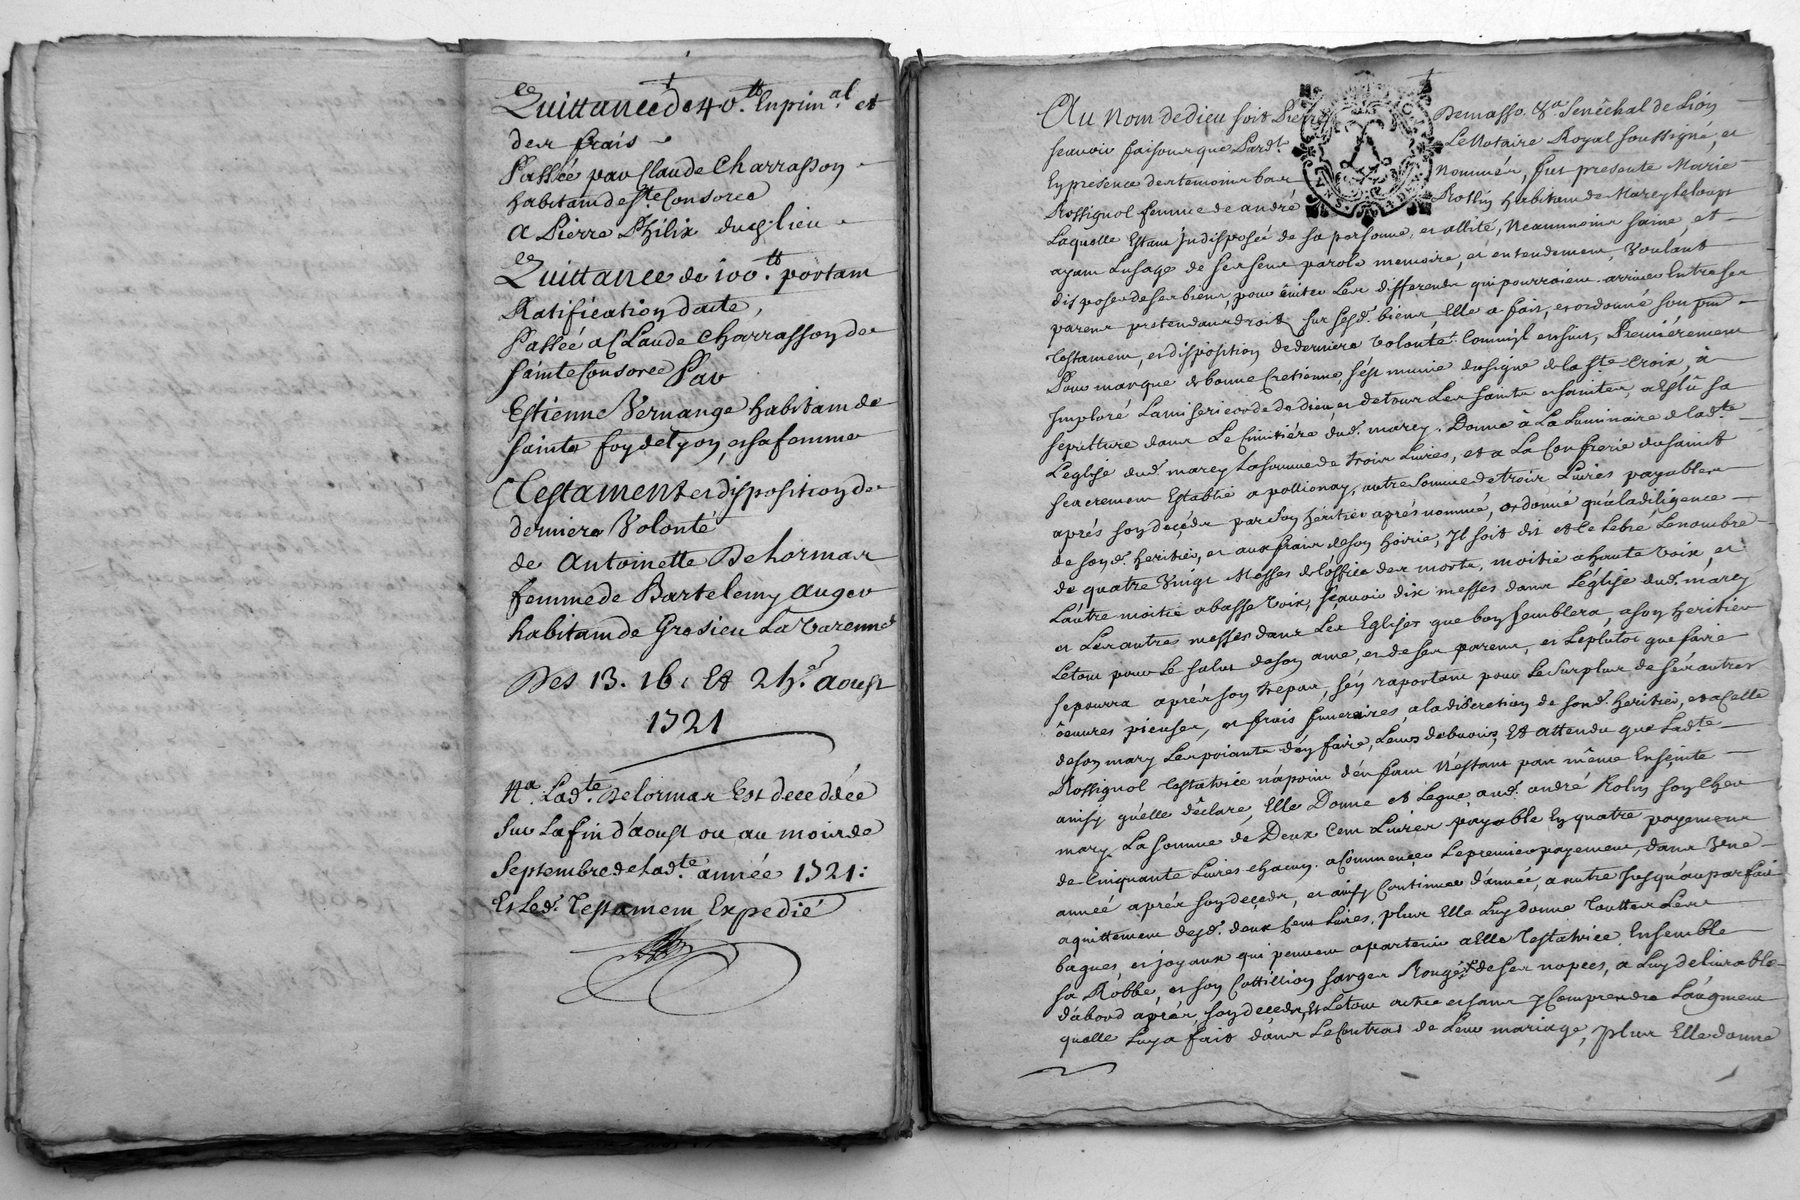 Quittance de 40.tt En prin.al et
des frais
Passée par Claude Charrasson
habitant de Ste Consorce
A Pierre Philix dud lieu
Quittance de 100.tt portant
Ratification d'acte,
Passée a Claude Charrasson de
Sainte Consorce Par
Estienne Vernange habitant de
Sainte foy de Lyon, et sa femme
Testament et disposition de
derniere Volonté
de Antoinette Delormas
femme de Bartelemy Auger
habitant de Grosieu La Varenne
Des 13. 16. Et 24.e aoust
1721
Na. Ladte Delormas Est deceddée
Sur La fin d'aoust ou au mois de
Septembre de Ladte année 1721:
Et Led. Testament Expedié
Au Nom de dieu soit Pierre Demasso &a Senéchal de Lion
scavoir faisons que Pardt Le Notaire Royal soussigné, et
En présence des temoins bas Nommés, fut presente Marie
Rossignol femme de andré Rollin habitant de Marcy le loup
Laquelle Estant Indisposée de sa personne, et allité, Neanmoins saine, et
ayant Lusage de ses sens parole memoire, et entendement, Voulant
disposer de ses biens, pour éuiter Les differends qui pourroient arriuer Entre ses
parens pretendans droit sur sesd. biens Elle a fait, et ordonné son pnt
testament, et disposition de derniere volonté Comm'il ensuit, Premiérement
Pour marque de bonne Cretienne, s'est munie du signe de la Ste Croix, à
Imploré La misericorde de dieu et de tous Les saints et saintes, a Eslû sa
sepulture dans Le Cimitiére dud. marcy. Donne à La Luminaire de ladte
L'eglise dud. marcy La somme de trois Liures, et a La Confrerie du saint
sacrement Establie a pollionay, autre somme de trois Liures payables
aprés son decéds par son héritier aprés nommé, ordonne qu'a la diligence
de sond. heritier, et aux frais de son hoirie, Il soit dit et Celebré Le nombre
de quatre Vingt Messes de l'office des morts, moitié a haute voix, et
L'autre moitié a basse voix, sçauoir dix messes dans L'église dud. marcy
et Les autres messes dans Les Eglises que bon semblera, a son heritier
Le tout pour Le salut de son ame, et de ses parens, et Le plutot que faire
se pourra aprés son trepas, s'en raportant pour Le surplus de ses autres
oeuures pieuses, et frais funeraires, a la discretion de sond. heritier, et a Celle
de son mary Les priants d'en faire, Leurs debuoirs, Et attendu que Ladte
Rossignol Testatrice n'a point d'enfans N'estant pas même Enseinte
ainsy qu'elle déclare, Elle Donne et Legue, aud. andré Rolin son cher
mary La somme de Deux Cent Liures payable En quatre payemens
de Cinquante Liures chacun. a Commencer Le premier payement, dans Une
année aprés son decéds, et ainsy Continuer d'année, a autre Jusqu'au parfait
aquittement desd. deux Cent Liures. plus Elle Luy donne Touttes Les
bagues, et joyaux qui peuuent apartenir a Elle Testatrice Ensemble
sa Robbe, et son Cottillion sarges Rouges de ses nopces, a Luy deliurable
d'abord aprés, son decéds, Et Le tout outre et sans y Comprendre L'augment
quelle Luy a fait dans Le Contrat de Leur mariage, plus Elle donne